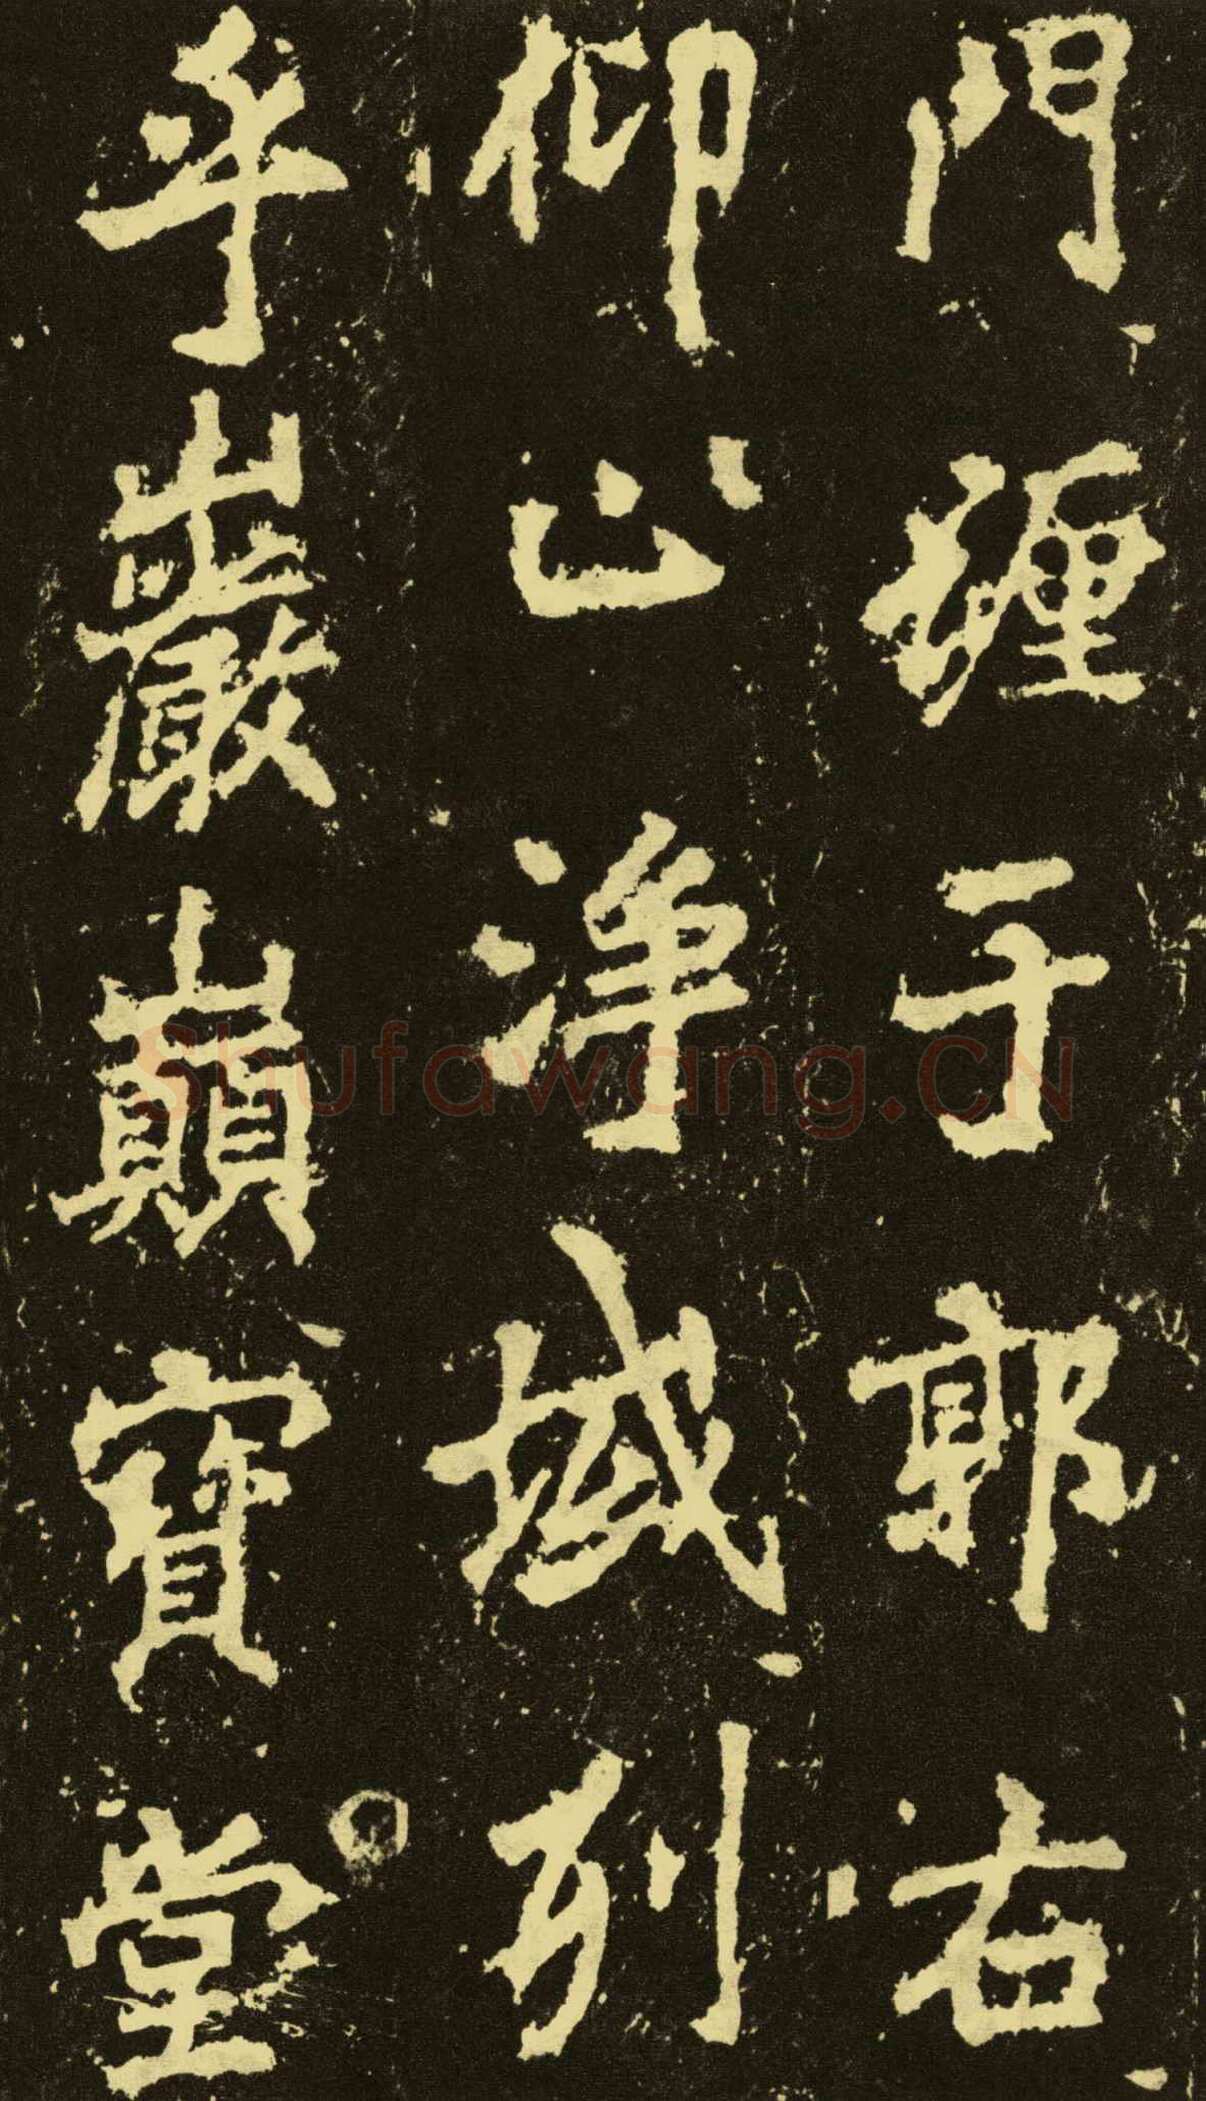 門緾于郭右
仰止淨域列
乎巖巔寶堂
Shufawang.CN